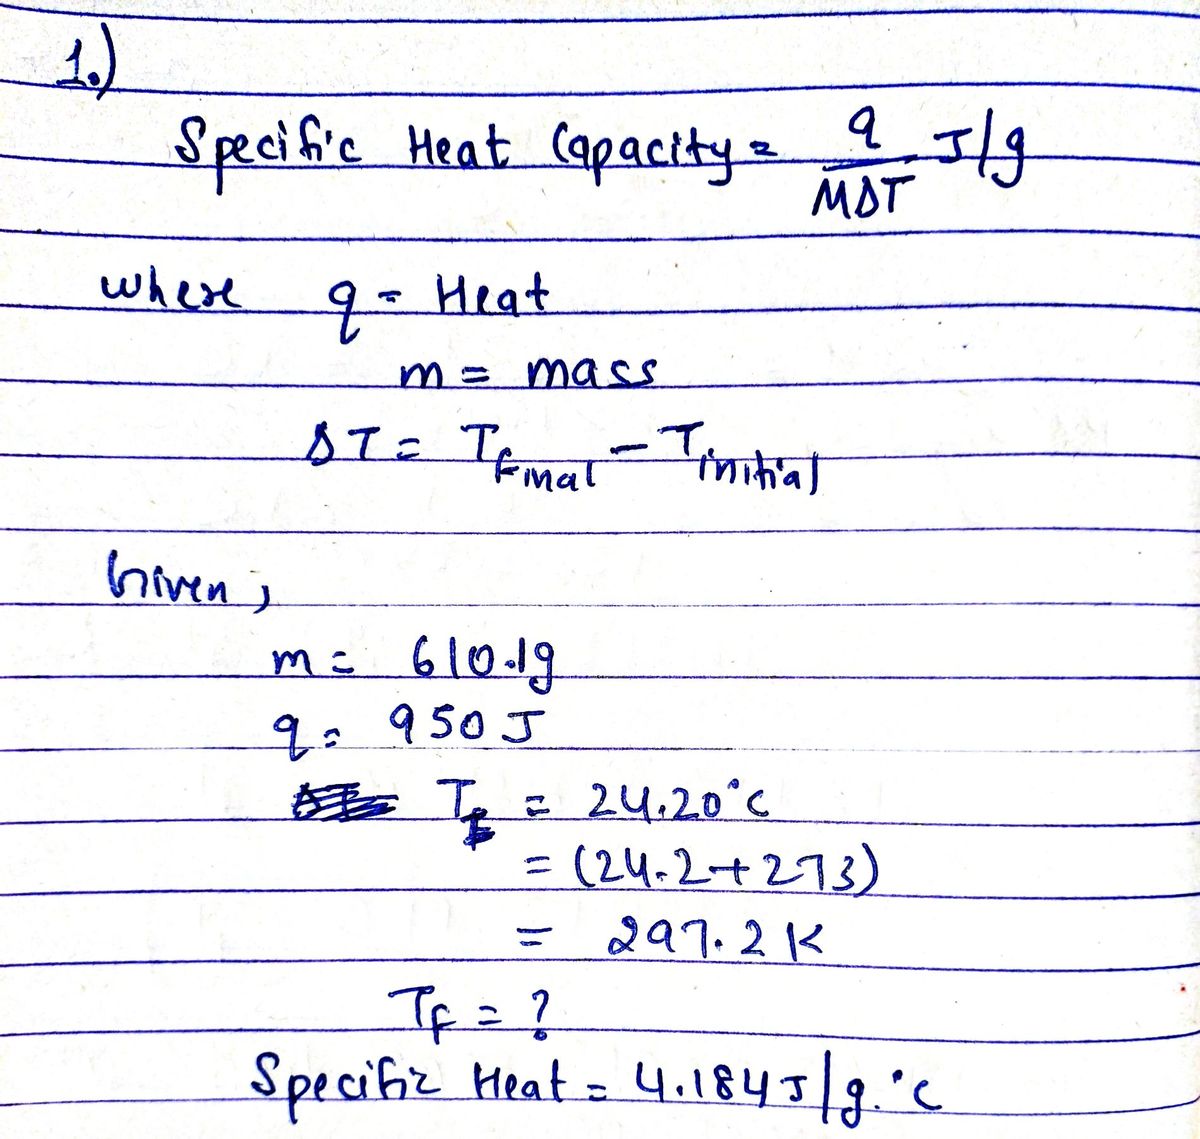 1.)
Specific Heat Capacity = q/MΔT J/g
where q = Heat
m = mass
ΔT = Tfinal - Tinitial
Given,
m = 610.1g
q = 950 J
T = 24.20°c
= (24.2+273)
= 297.2 K
Tf = ?
Specific Heat = 4.184 J/g.°c